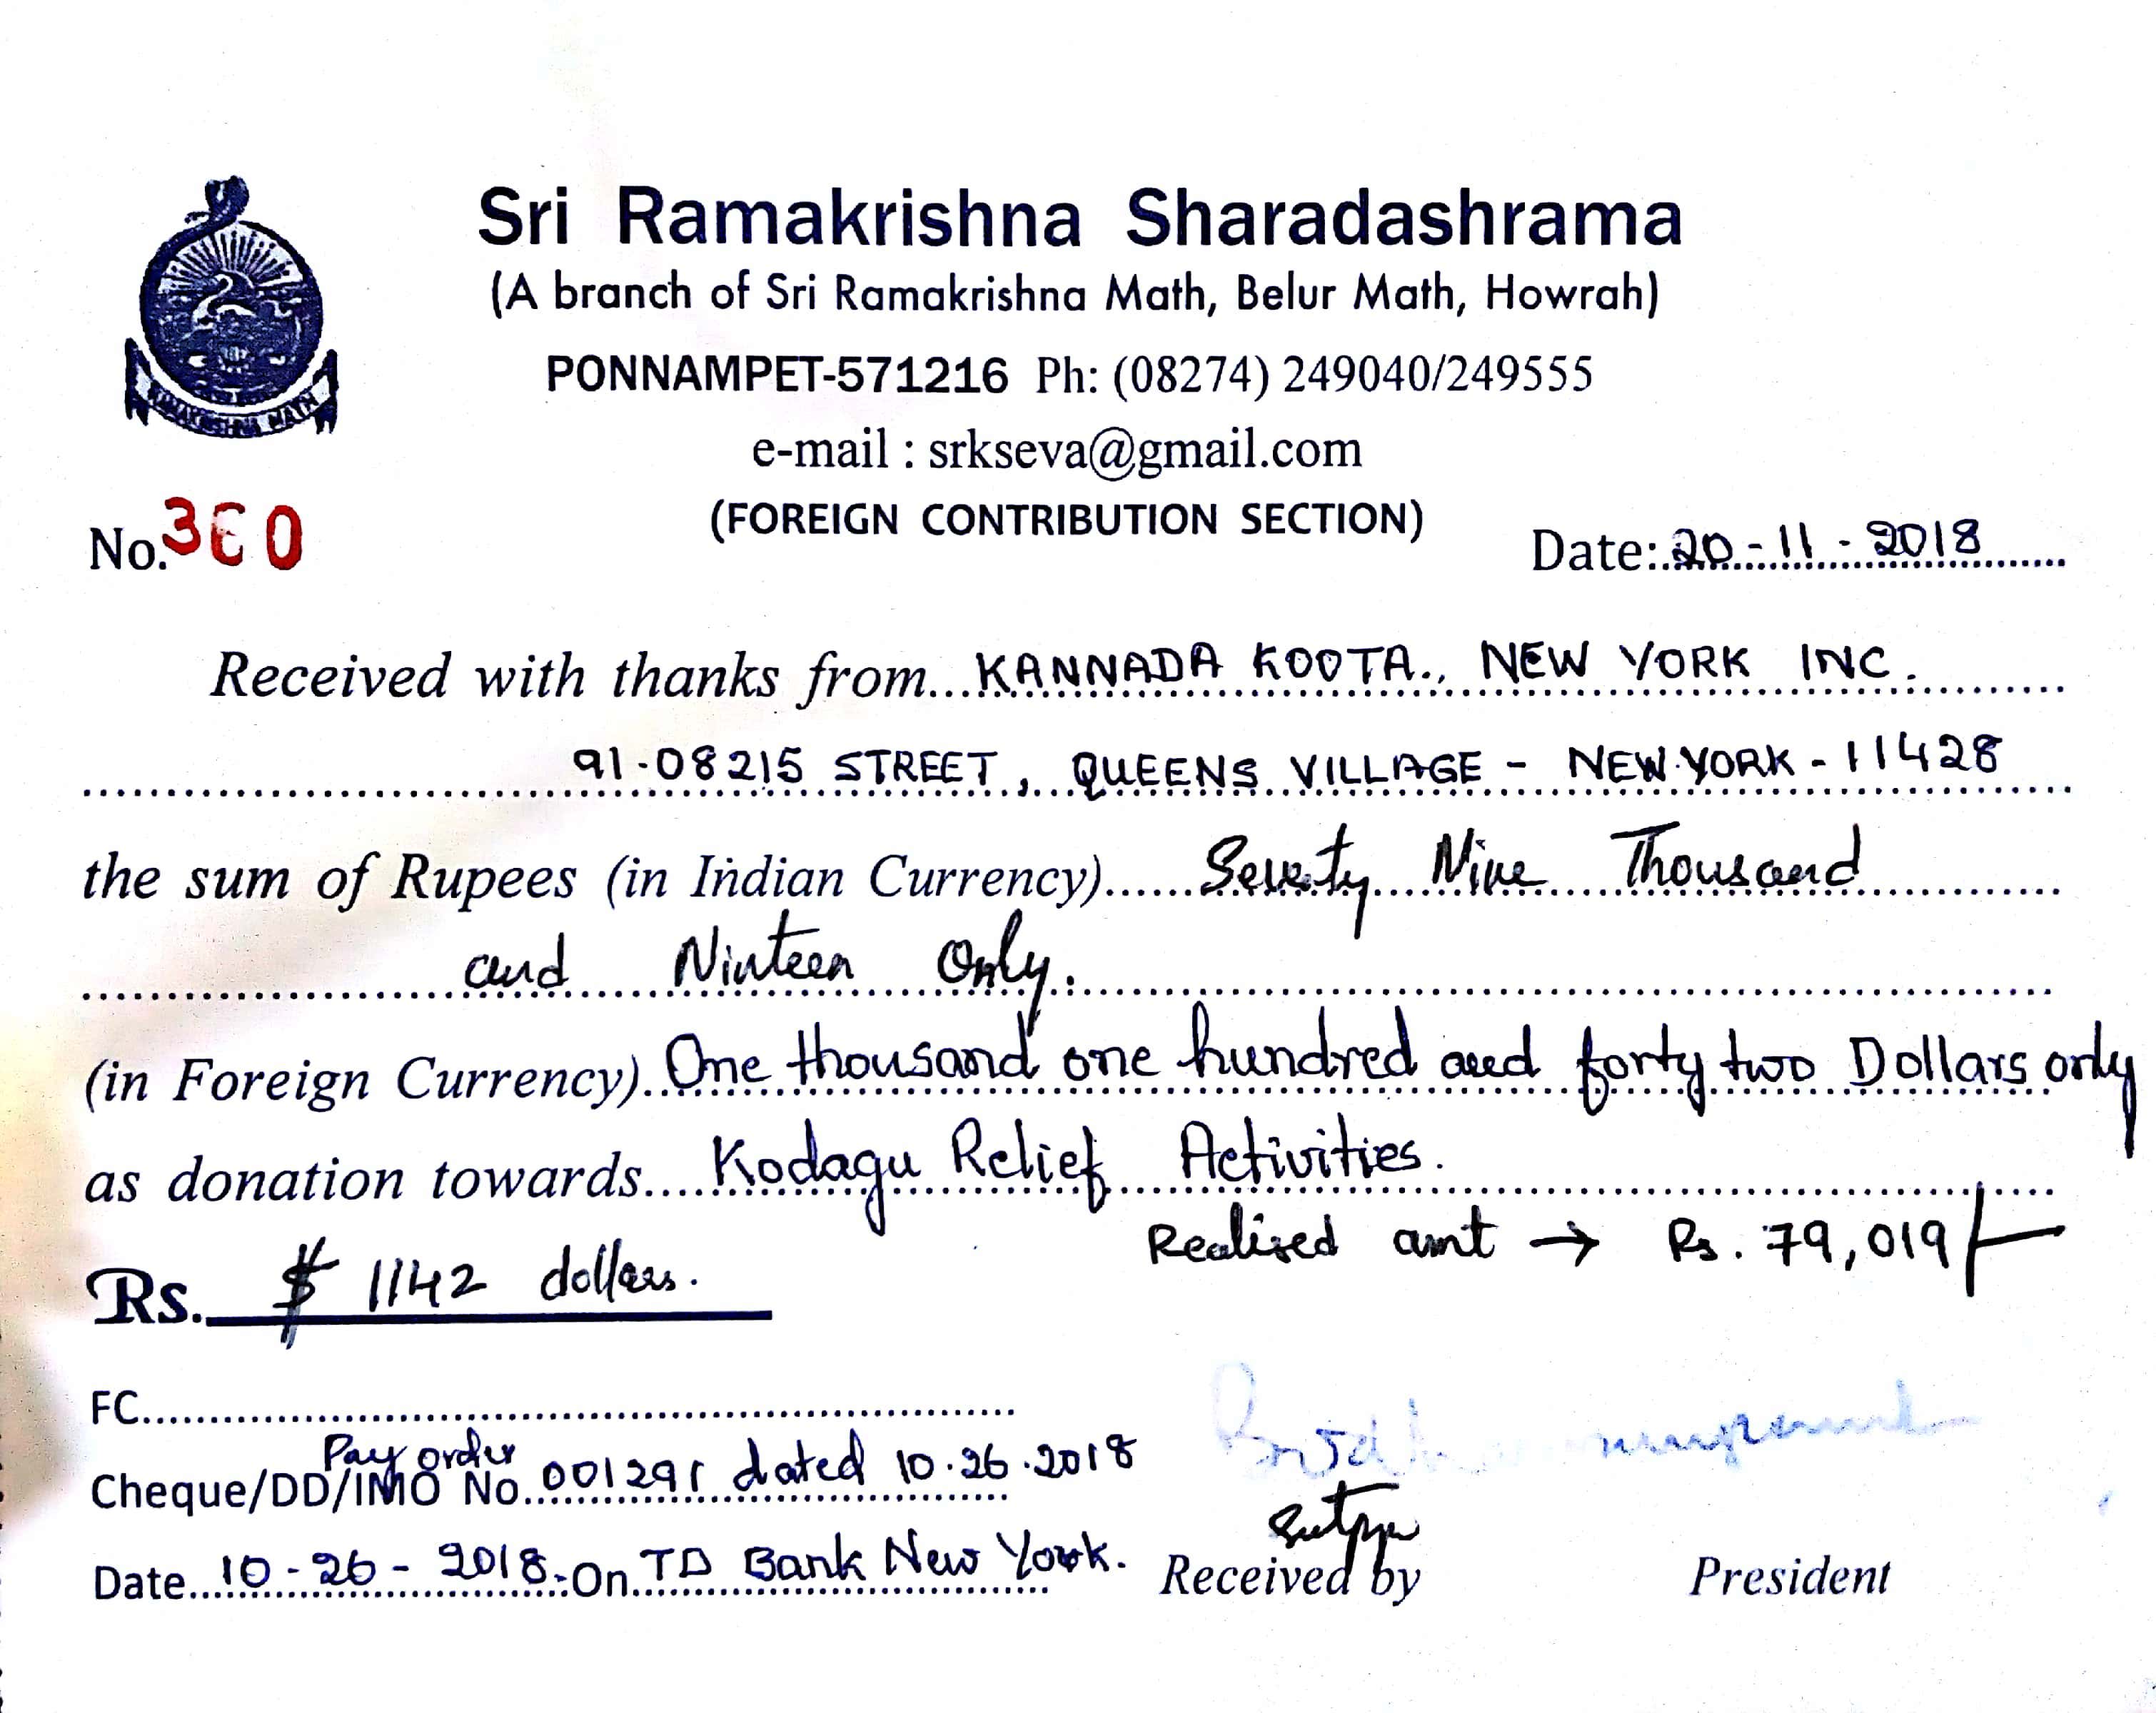 Sri Ramakrishna Sharadashrama
(A branch of Sri Ramakrishna Math, Belur Math, Howrah)
PONNAMPET-571216 Ph: (08274) 249040/249555
e-mail : srkseva@gmail.com
(FOREIGN CONTRIBUTION SECTION)
No. 360 Date: 20-11-2018
Received with thanks from KANNADA KOOTA., NEW YORK INC.
91-08215 STREET, QUEENS VILLAGE - NEW YORK - 11428
the sum of Rupees (in Indian Currency) Seventy Nine Thousand
and Ninteen Only.
(in Foreign Currency) One thousand one hundred and forty two Dollars only
as donation towards Kodagu Relief Activities.
Realised amt → Rs. 79,019/-
Rs. $ 1142 dollars.
FC
Pay order
Cheque/DD/IMO No. 001291 dated 10.26.2018
Date 10-26-2018. On TD Bank New York.
Received by President